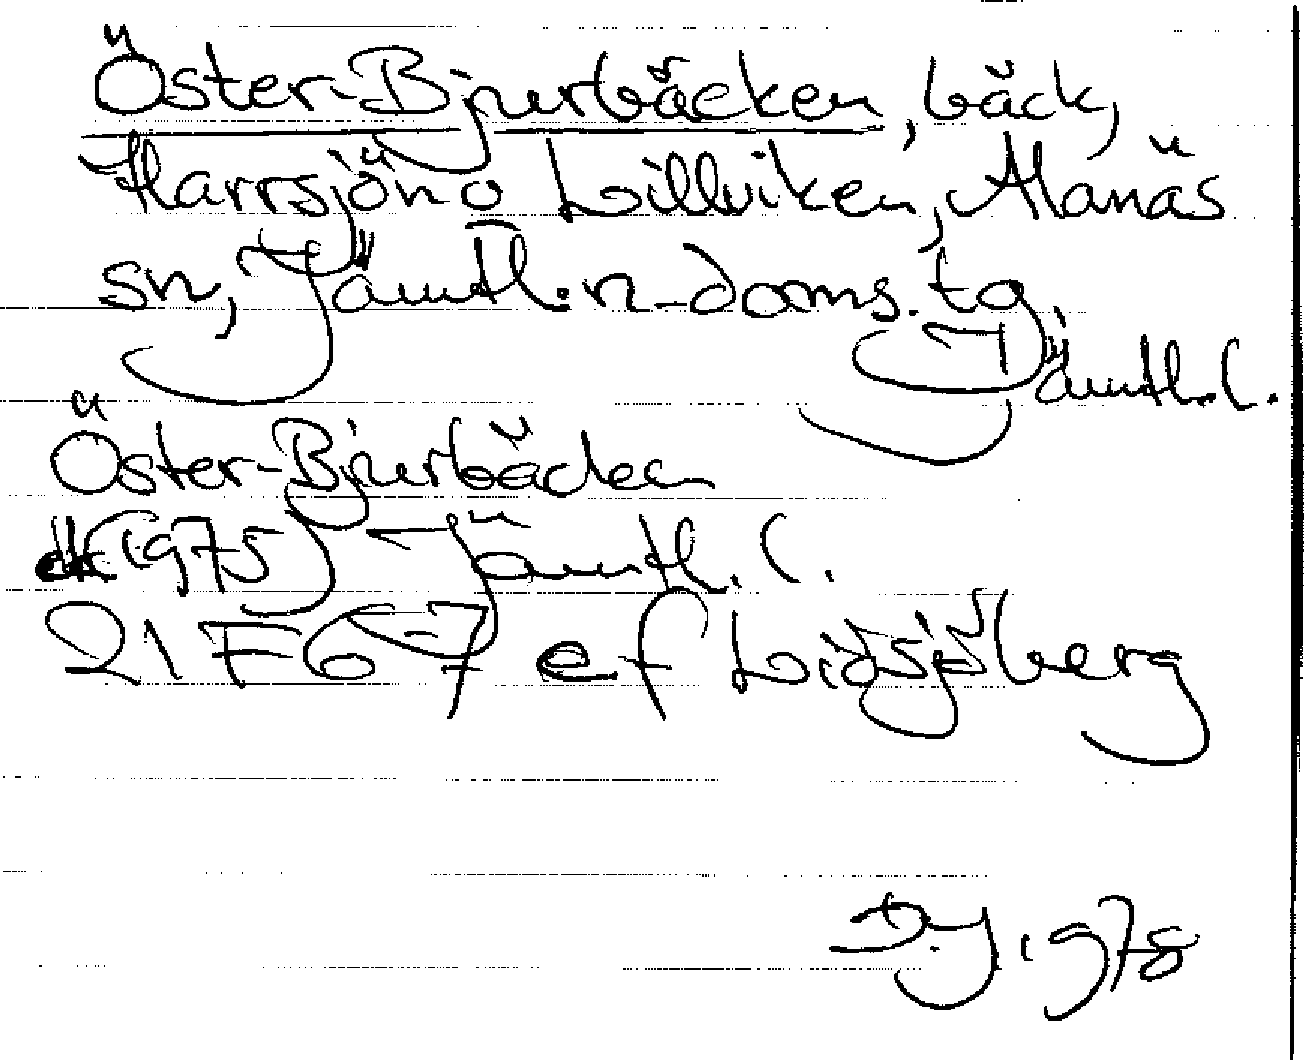 Öster-Bjurbäcken, bäck,
Harrsjön o Lillviken, Alanäs
sn, Jämtl:n-doms. tg,
Jämtl.l.
Öster-Bjurbäcken
(1975) Jämtl.l.
21F6-7 ef Lidsjöberg
D.J 1978